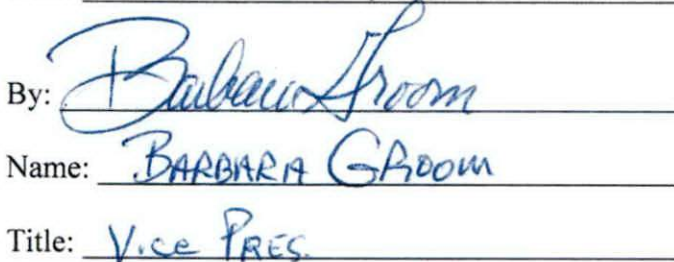 By: Barbara Groom
Name: BARBARA GROOM
Title: Vice PRES.